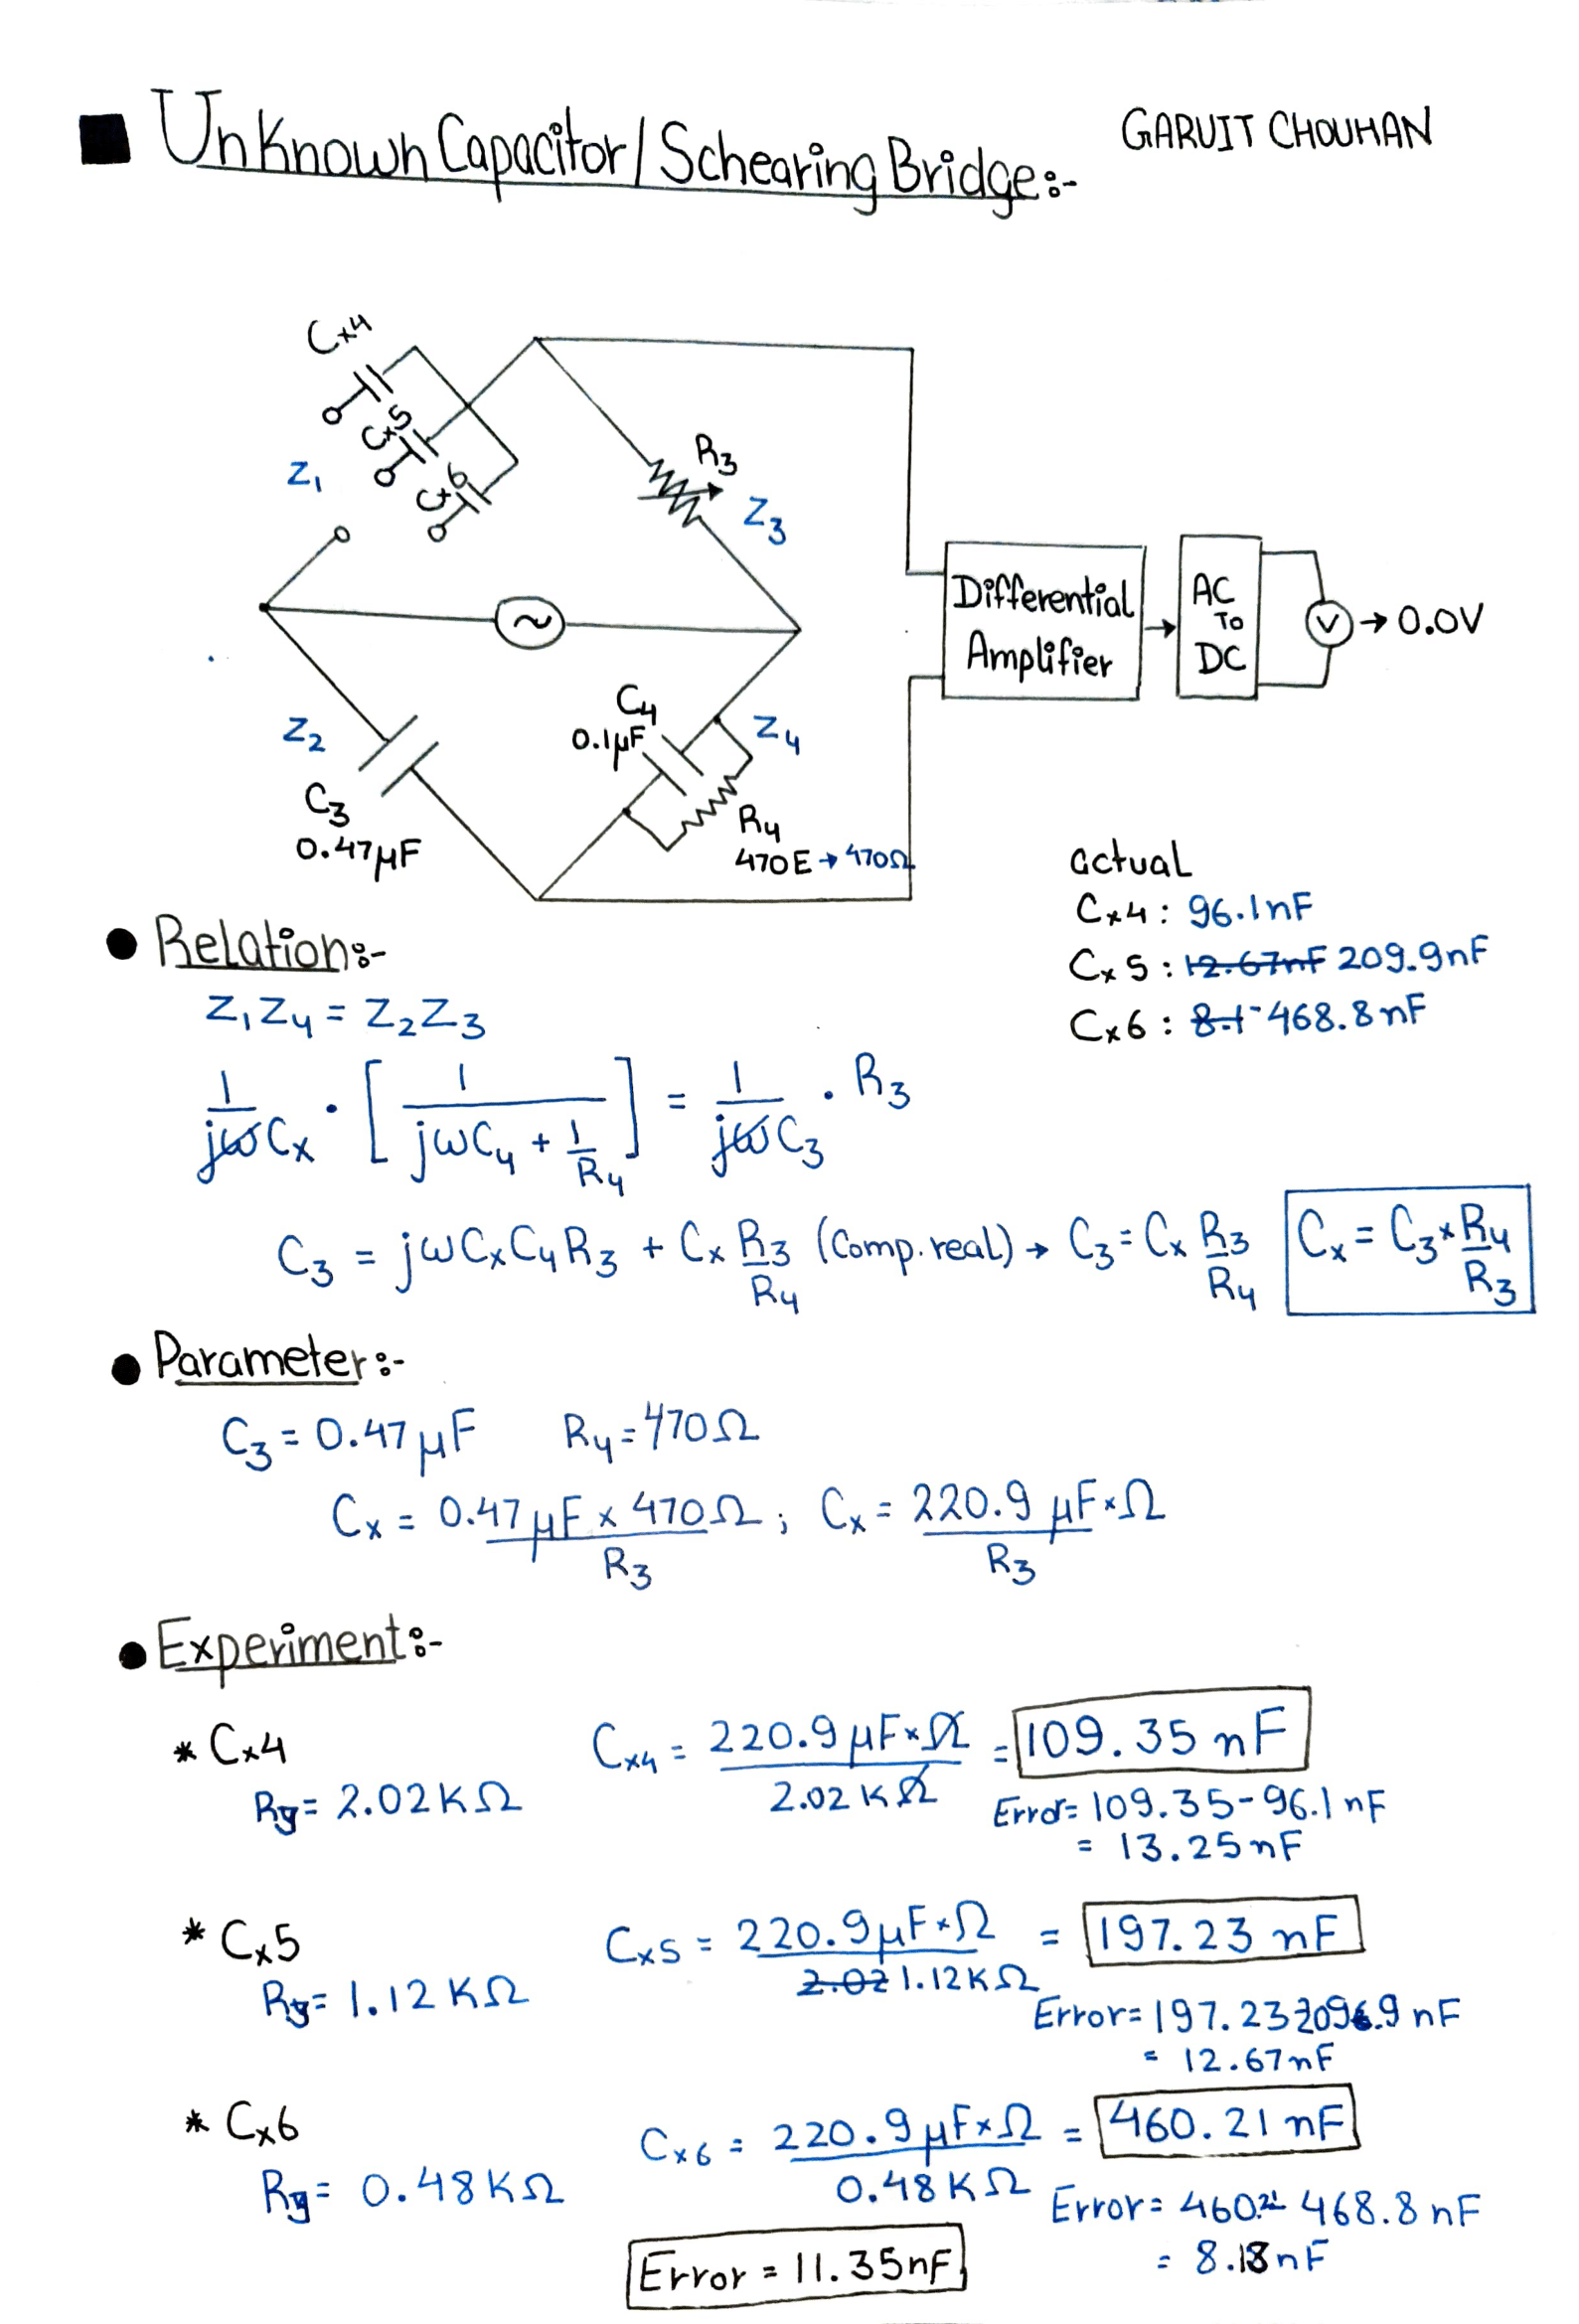 UnKnown Capacitor / Schearing Bridge:-
GARVIT CHOUHAN
Cx4
Cx5
Cx6
Z1
R3
Z3
Differential
Amplifier
AC
To
DC
V → 0.0V
Z2
C3
0.47μF
C4
0.1μF
Z4
R4
470E → 470Ω
actual
Cx4 : 96.1nF
Cx5 : 12.67nF 209.9nF
Cx6 : 8.1 468.8nF
Relation:-
Z1Z4 = Z2Z3
1/jωCx · [1/(jωC4 + 1/R4)] = 1/jωC3 · R3
C3 = jωCxC4R3 + Cx R3/R4 (Comp. real) → C3 = Cx R3/R4 Cx = C3 × R4/R3
Parameter:-
C3 = 0.47μF R4 = 470Ω
Cx = 0.47μF × 470Ω/R3 ; Cx = 220.9 μF×Ω/R3
Experiment:-
* Cx4 Cx4 = 220.9 μF×Ω/2.02KΩ = 109.35 nF
R3 = 2.02KΩ
Error = 109.35 - 96.1nF
= 13.25nF
* Cx5 Cx5 = 220.9μF×Ω/2.02 1.12KΩ = 197.23 nF
R3 = 1.12KΩ
Error = 197.23 209.9 nF
= 12.67nF
* Cx6 Cx6 = 220.9μF×Ω/0.48KΩ = 460.21 nF
R3 = 0.48KΩ
Error = 460.21 468.8 nF
= 8.13nF
Error = 11.35nF